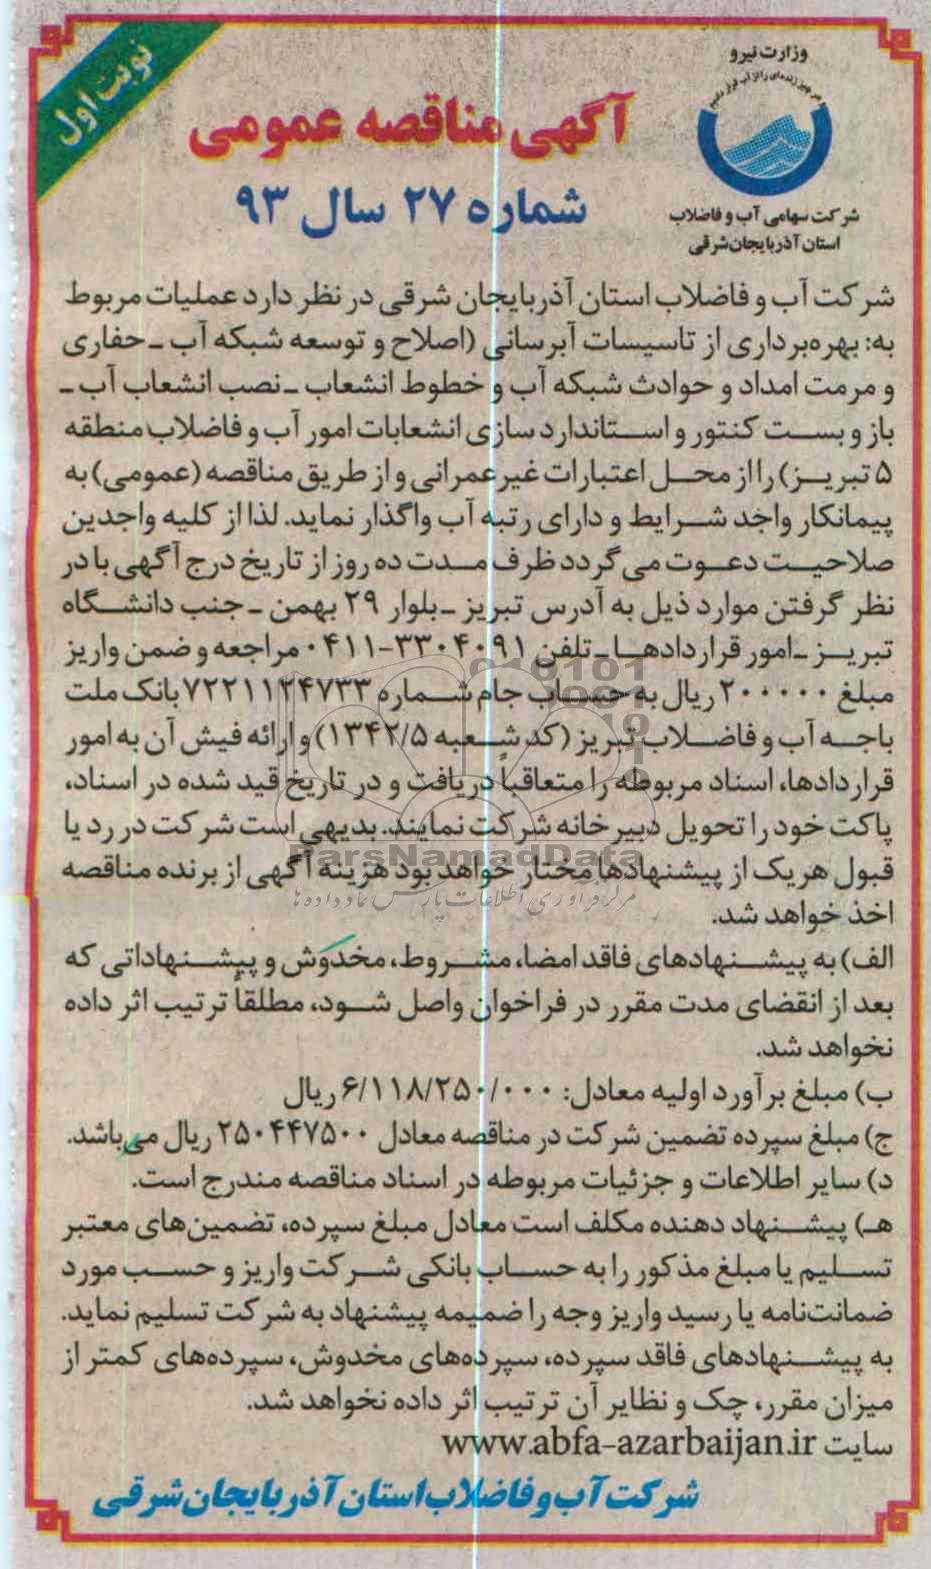 نوبت اول
وزارت نیرو
شرکت سهامی آب و فاضلاب
استان آذربایجان‌شرقی
آگهی مناقصه عمومی
شماره ۲۷ سال ۹۳
شرکت آب و فاضلاب استان آذربایجان شرقی در نظر دارد عملیات مربوط
به: بهره‌برداری از تاسیسات آبرسانی (اصلاح و توسعه شبکه آب ـ حفاری
و مرمت امداد و حوادث شبکه آب و خطوط انشعاب ـ نصب انشعاب آب ـ
باز و بست کنتور و استاندارد سازی انشعابات امور آب و فاضلاب منطقه
۵ تبریز) را از محل اعتبارات غیرعمرانی و از طریق مناقصه (عمومی) به
پیمانکار واجد شرایط و دارای رتبه آب واگذار نماید. لذا از کلیه واجدین
صلاحیت دعوت می گردد ظرف مدت ده روز از تاریخ درج آگهی با در
نظر گرفتن موارد ذیل به آدرس تبریز ـ بلوار ۲۹ بهمن ـ جنب دانشگاه
تبریز ـ امور قراردادها ـ تلفن ۳۳۰۴۰۹۱-۰۴۱۱ مراجعه و ضمن واریز
مبلغ ۲۰۰۰۰۰ ریال به حساب جام شماره ۷۲۲۱۱۲۴۷۳۳ بانک ملت
باجه آب و فاضلاب تبریز (کد شعبه ۱۳۴۲/۵) و ارائه فیش آن به امور
قراردادها، اسناد مربوطه را متعاقباً دریافت و در تاریخ قید شده در اسناد،
پاکت خود را تحویل دبیرخانه شرکت نمایند. بدیهی است شرکت در رد یا
قبول هر یک از پیشنهادها مختار خواهد بود هزینه آگهی از برنده مناقصه
اخذ خواهد شد.
الف) به پیشنهادهای فاقد امضا، مشروط، مخدوش و پیشنهاداتی که
بعد از انقضای مدت مقرر در فراخوان واصل شود، مطلقاً ترتیب اثر داده
نخواهد شد.
ب) مبلغ برآورد اولیه معادل: ۶/۱۱۸/۲۵۰/۰۰۰ ریال
ج) مبلغ سپرده تضمین شرکت در مناقصه معادل ۲۵۰۴۴۷۵۰۰ ریال می‌باشد.
د) سایر اطلاعات و جزئیات مربوطه در اسناد مناقصه مندرج است.
هـ) پیشنهاد دهنده مکلف است معادل مبلغ سپرده، تضمین‌های معتبر
تسلیم یا مبلغ مذکور را به حساب بانکی شرکت واریز و حسب مورد
ضمانت‌نامه یا رسید واریز وجه را ضمیمه پیشنهاد به شرکت تسلیم نماید.
به پیشنهادهای فاقد سپرده، سپرده‌های مخدوش، سپرده‌های کمتر از
میزان مقرر، چک و نظایر آن ترتیب اثر داده نخواهد شد.
سایت www.abfa-azarbaijan.ir
شرکت آب و فاضلاب استان آذربایجان شرقی
ParsNamadData